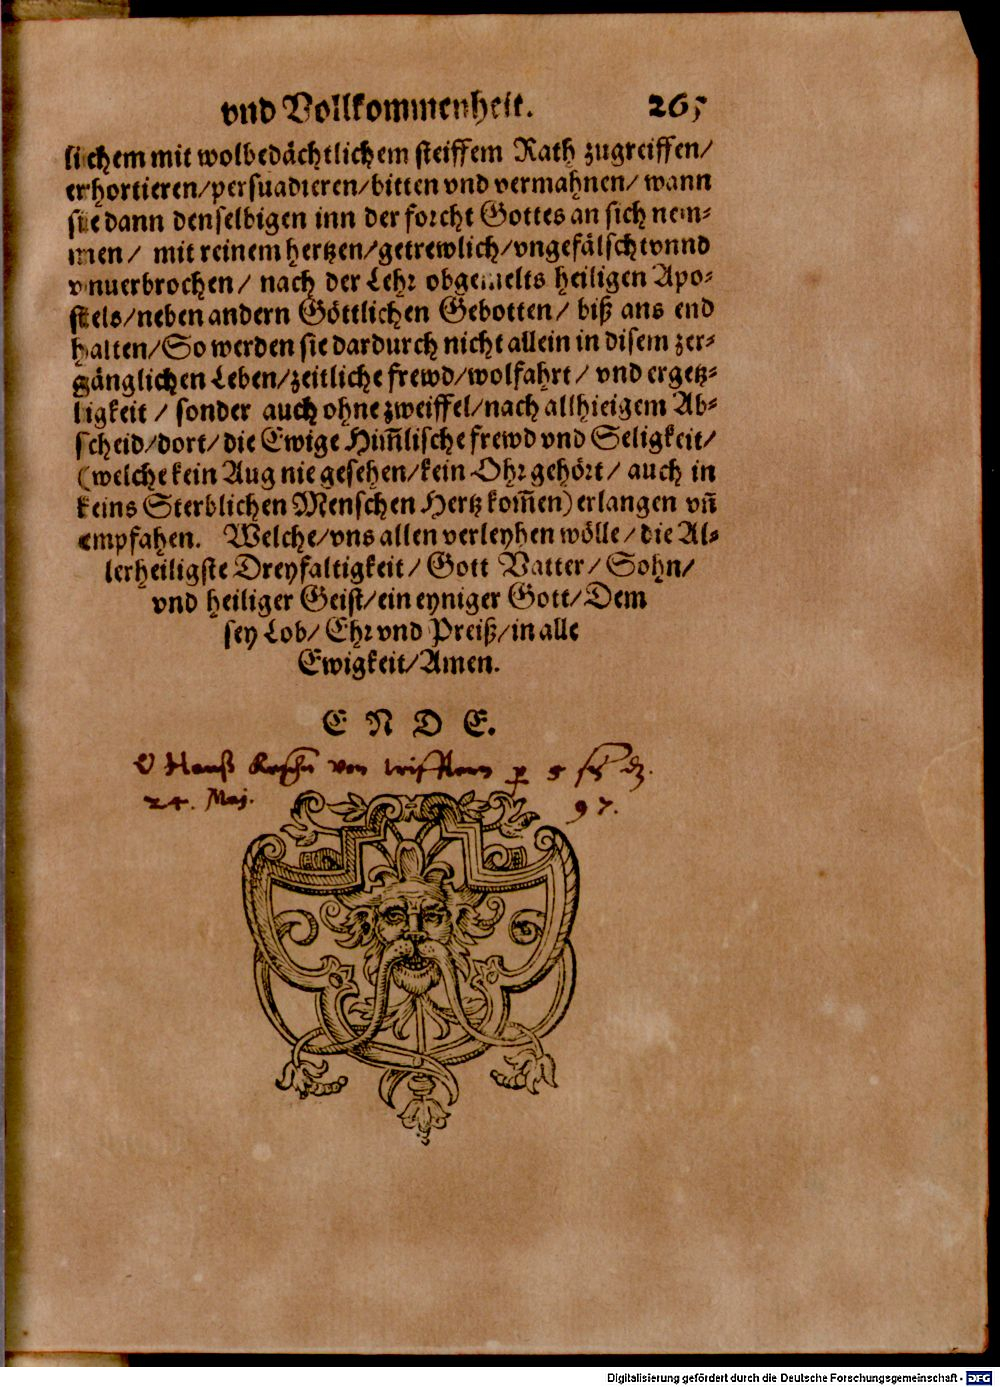 vnd Vollkommenheit. 265
lichem mit wolbedächtlichem steiffem Rath zugreiffen/
erhortieren/persuadieren/bitten vnd vermahnen/ wann
sie dann denselbigen inn der forcht Gottes an sich nem⸗
men/ mit reinem hertzen/getrewlich/vngefälscht vnnd
vnuerbrochen/ nach der Lehr obgemelts heiligen Apo⸗
stels/neben andern Göttlichen Gebotten/ biß ans end
halten/So werden sie dardurch nicht allein in disem zer⸗
gänglichen Leben/zeitliche frewd/wolfahrt/ vnd ergetz⸗
ligkeit/ sonder auch ohne zweiffel/nach allhieigem Ab⸗
scheid/dort/die Ewige Him̃lische frewd vnd Seligkeit/
(welche kein Aug nie gesehen/kein Ohr gehört/ auch in
keins Sterblichen Menschen Hertz kom̃en) erlangen vñ
empfahen. Welche/vns allen verleyhen wölle/ die Al⸗
lerheiligste Dreyfaltigkeit/ Gott Vatter/ Sohn/
vnd heiliger Geist/ein eyniger Gott/Dem
sey Lob/ Ehr vnd Preiß/in alle
Ewigkeit/Amen.
E N D E.
Hanß von
24. Maj. 97.
Digitalisierung gefördert durch die Deutsche Forschungsgemeinschaft - DFG